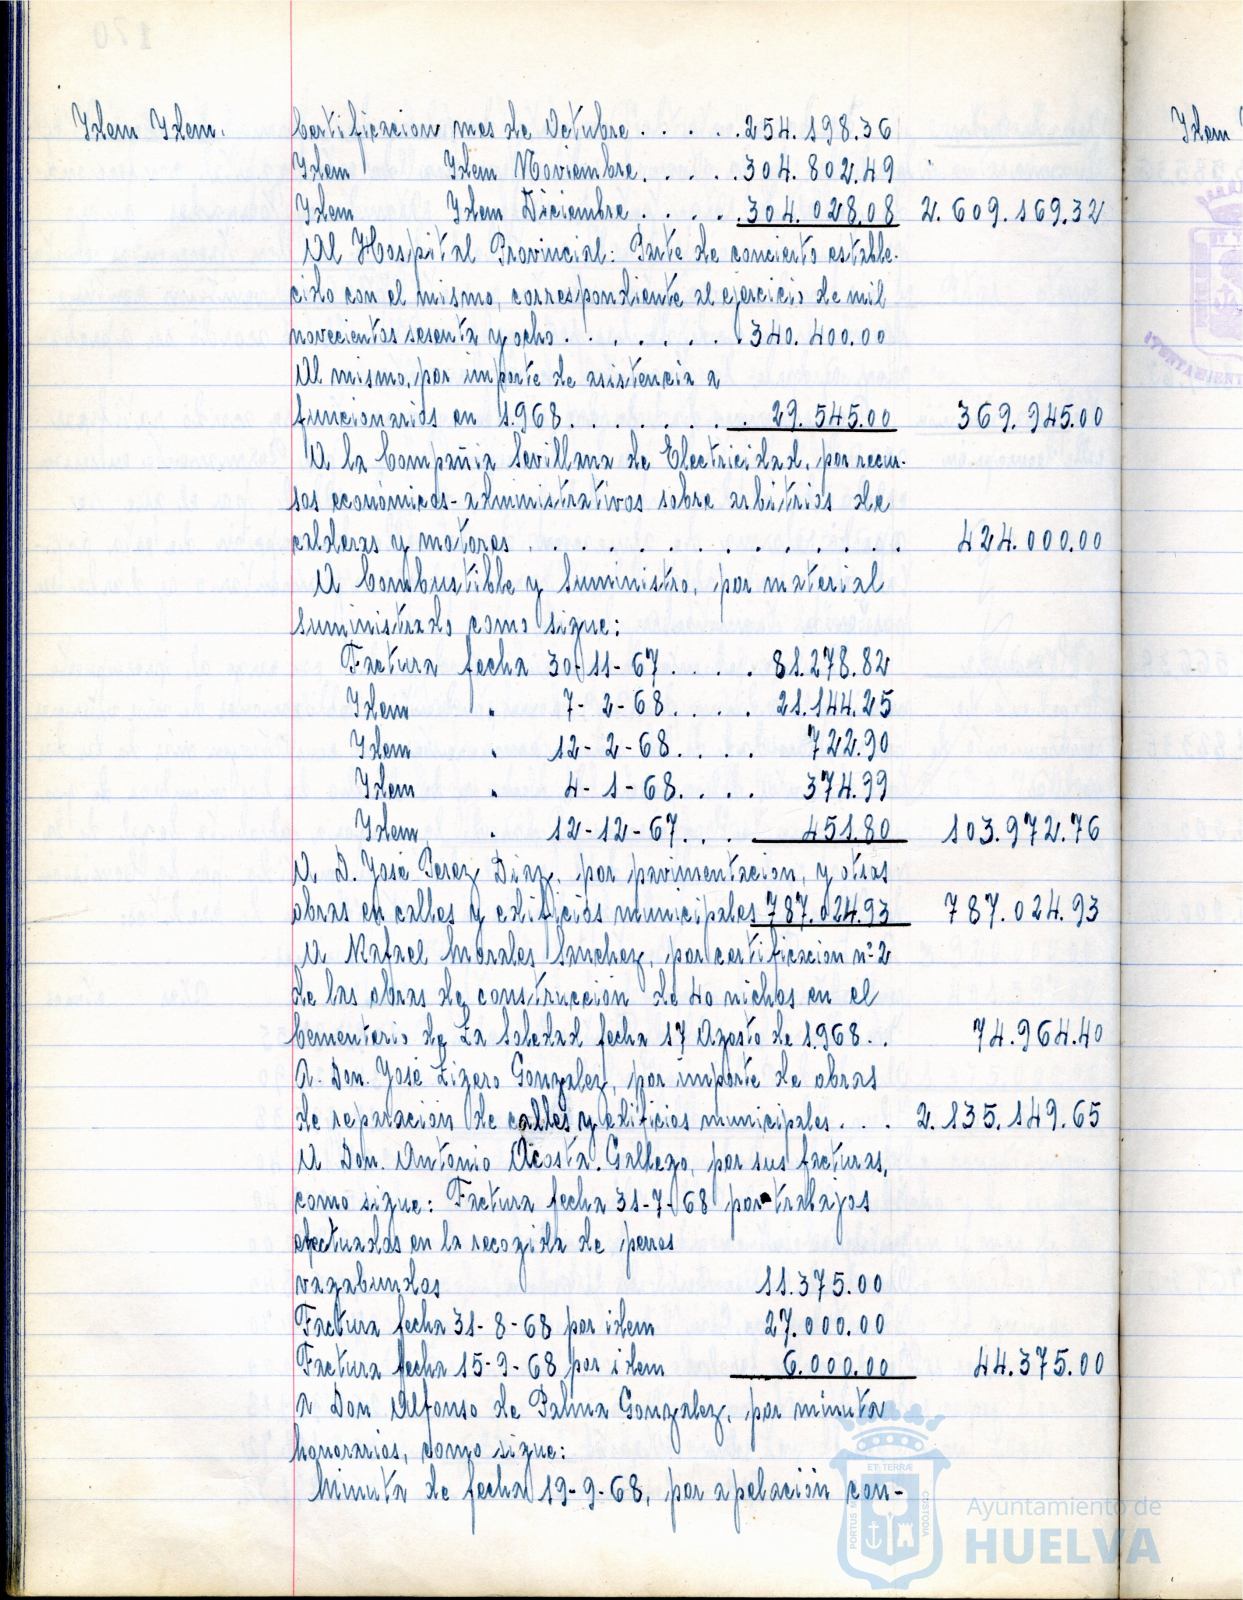 Idem Idem.
Certificacion mes de Octubre . . . . . 254.198.36
Idem Idem Noviembre. . . . . 304.802.49
Idem Idem Diciembre . . . . . 304.028.08 2.609.169.32
Al Hospital Provincial: Parte de concierto estable-
cido con el mismo, correspondiente al ejercicio de mil
novecientos sesenta y ocho . . . . . . . 340.400.00
Al mismo, por importe de asistencia a
funcionarios en 1.968. . . . . . . . 29.545.00 369.945.00
A la Compañia Sevillana de Electricidad, por recur-
sos económicos-administrativos sobre arbitrios de
calderas y motores . . . . . . . . . . . . . 424.000.00
A Combustible y Suministro, por material
suministrado como sigue:
Factura fecha 30-11-67. . . . . 81.278.82
Idem " 7-2-68. . . . . 21.144.25
Idem " 12-2-68. . . . . 722.90
Idem " 4-1-68. . . . 374.99
Idem " 12-12-67. . . 451.80 103.972.76
A D. José Perez Diaz, por pavimentacion, y otras
obras en calles y edificios municipales 787.024.93 787.024.93
A Rafael Morales Sanchez, por certificacion nº 2
de las obras de construccion de 40 nichos en el
Cementerio de La Soledad fecha 17 Agosto de 1.968 . . 74.964.40
A. Don. José Ligero Gonzalez, por importe de obras
de reparación de calles y edificios municipales . . . 2.135.149.65
A Don. Antonio Acosta. Gallego, por sus facturas,
como sigue: Factura fecha 31-7-68 por trabajos
efectuados en la recogida de perros
vagabundos 11.375.00
Factura fecha 31-8-68 por idem 27.000.00
Factura fecha 15-9-68 por idem 6.000.00 44.375.00
A Don Alfonso de Palma Gonzalez, por minuta
honorarios, como sigue:
Minuta de fecha 19-9-68, por apelación con-
Idem
Ayuntamiento de
HUELVA
ET TERRÆ
CUSTODIA